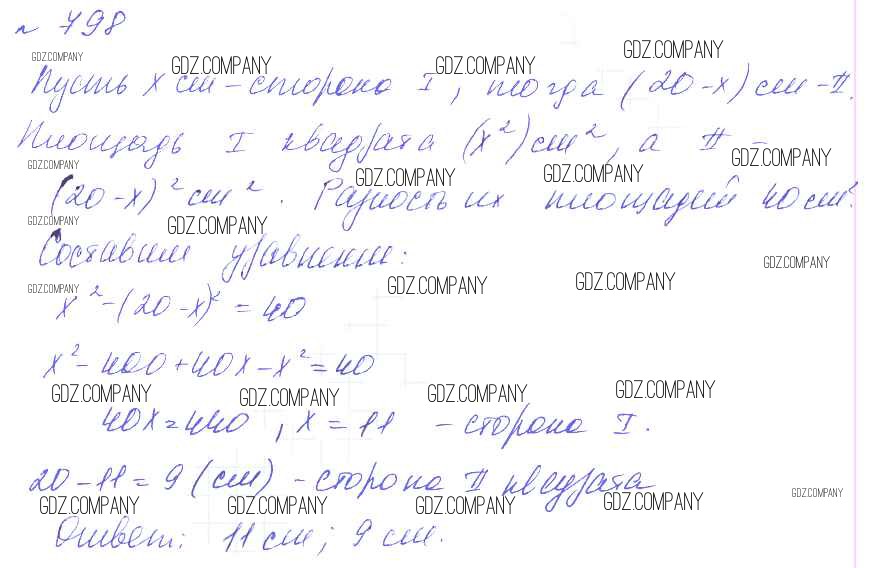 № 798
GDZ.COMPANY GDZ.COMPANY GDZ.COMPANY GDZ.COMPANY
Пусть x см – сторона I, тогда (20 - x) см – II.
Площадь I квадрата (x²) см², а II –
GDZ.COMPANY GDZ.COMPANY GDZ.COMPANY GDZ.COMPANY
(20 - x)² см². Разность их площадей 40 см².
GDZ.COMPANY GDZ.COMPANY
Составим уравнение:
GDZ.COMPANY GDZ.COMPANY GDZ.COMPANY GDZ.COMPANY
x² - (20 - x)² = 40
x² - 400 + 40x - x² = 40
GDZ.COMPANY GDZ.COMPANY GDZ.COMPANY GDZ.COMPANY
40x = 440, x = 11 – сторона I.
20 - 11 = 9 (см) – сторона II квадрата
GDZ.COMPANY GDZ.COMPANY GDZ.COMPANY GDZ.COMPANY GDZ.COMPANY
Ответ: 11 см; 9 см.